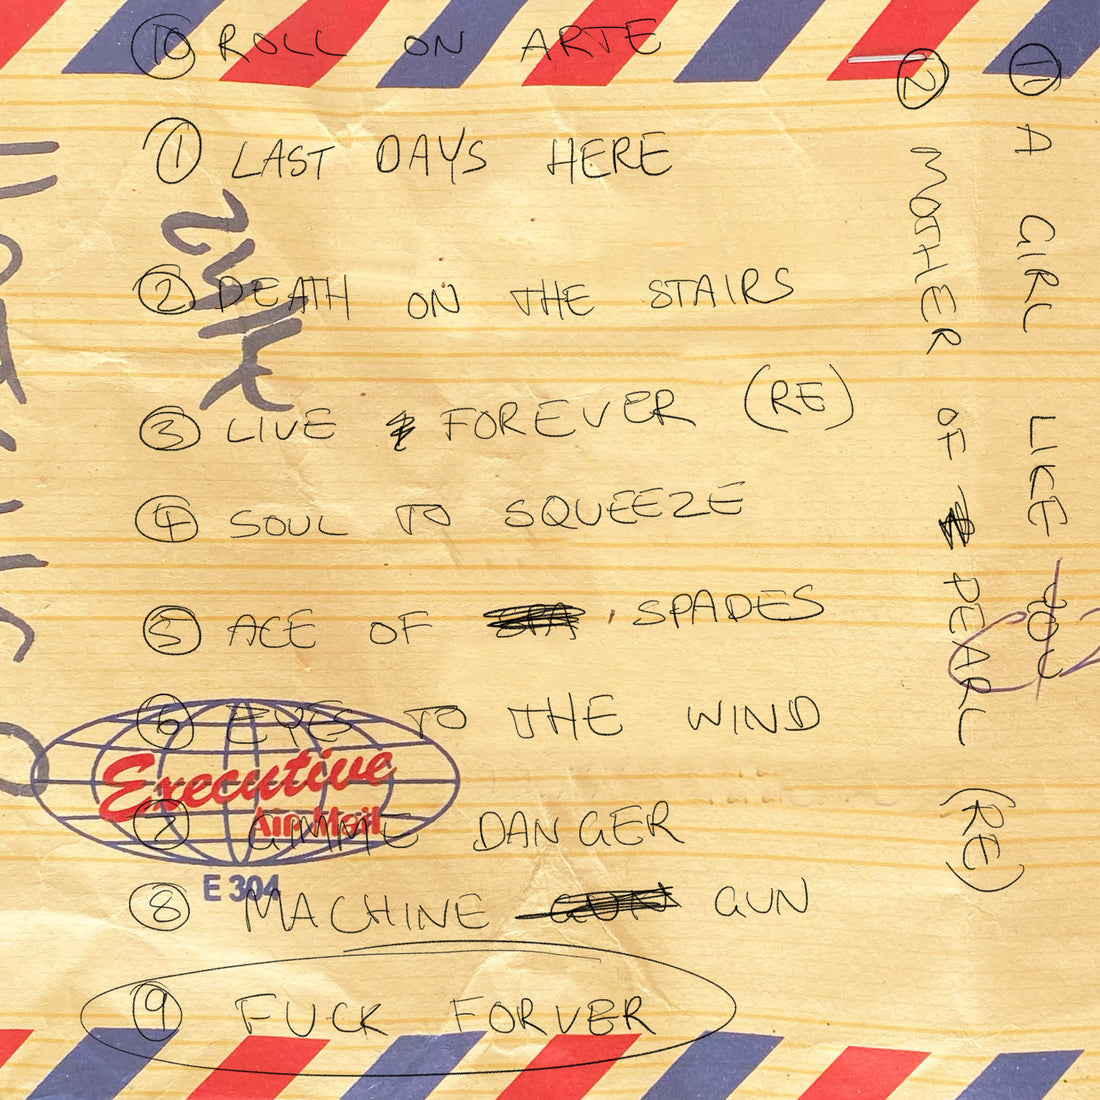 ⑩ ROLL ON ARTE
① LAST DAYS HERE
② DEATH ON THE STAIRS
③ LIVE FOREVER (RE)
④ SOUL TO SQUEEZE
⑤ ACE OF SPADES
⑥ EYES TO THE WIND
Executive
Air Mail
⑦ GIMME DANGER
E 304
⑧ MACHINE GUN
⑨ FUCK FORVER
② MOTHER OF PEARL (RE)
① A GIRL LIKE YOU